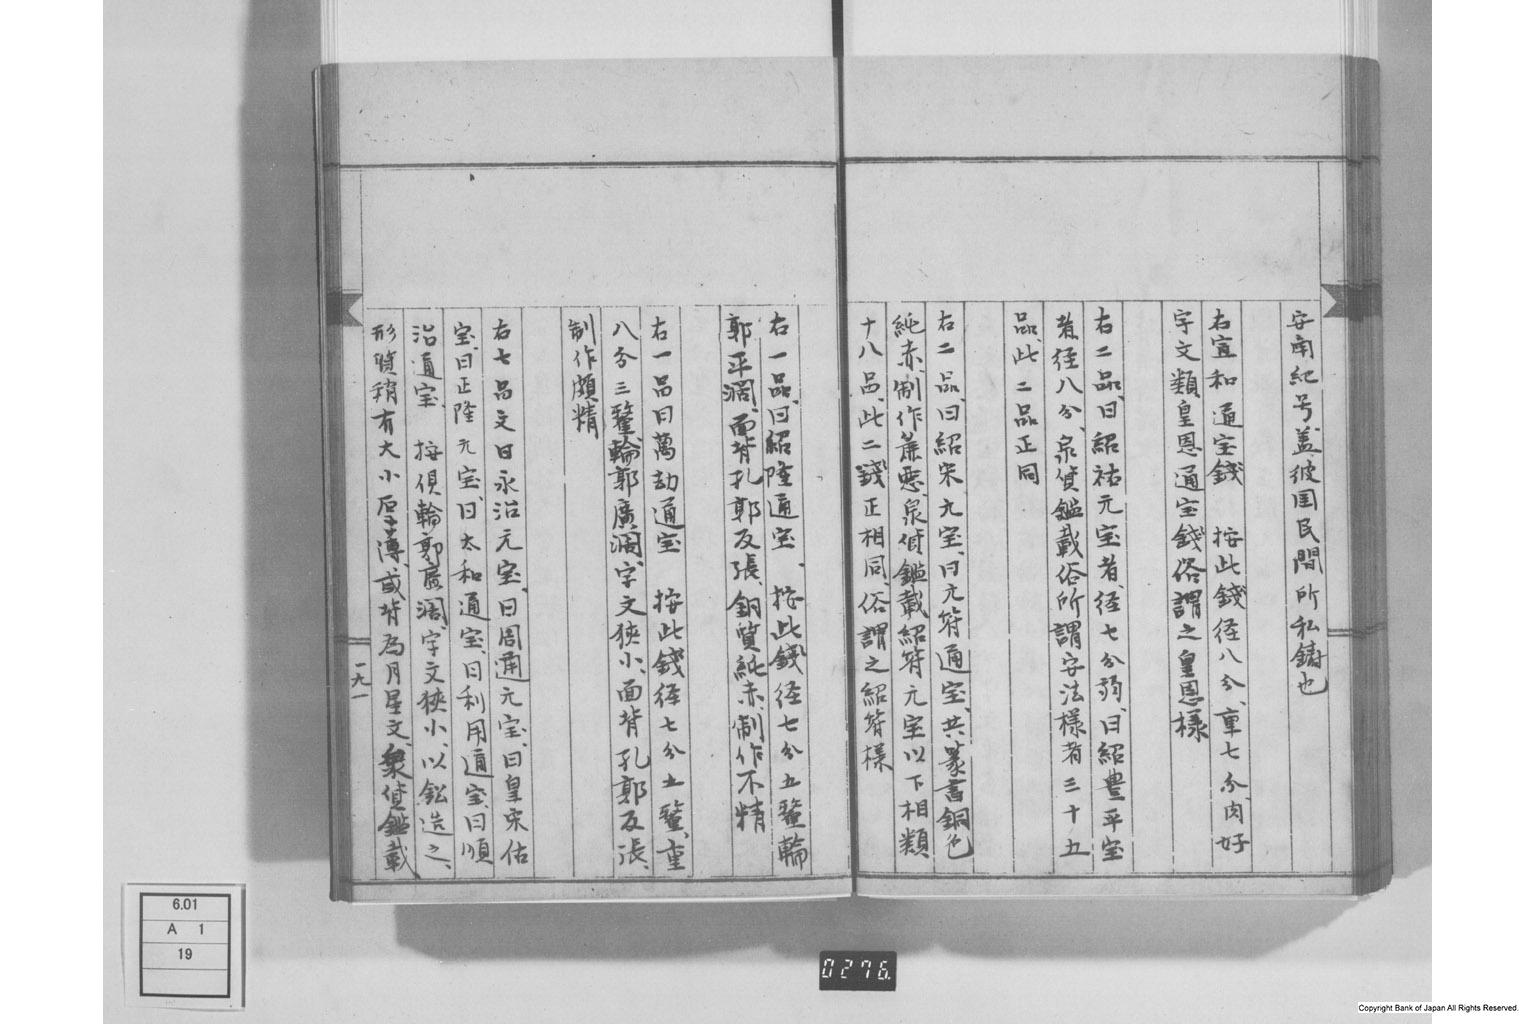 安南紀号蓋彼国民間所私鋳也
右宣和通宝錢 按此錢径八分、重七分、肉好
字文類皇恩通宝錢俗謂之皇恩樣
右二品、曰紹祐元宝者、径七分弱、曰紹豊平宝
者径八分、泉貨鑑載俗所謂安法樣者三十五
品、此二品正同
右二品、曰紹宋元宝、曰元符通宝、共篆書銅色
純赤、制作麁悪、泉貨鑑載紹符元宝以下相類
十八品、此二錢正相同、俗謂之紹符樣
右一品、曰紹隆通宝、按此錢径七分五釐輪
郭平濶、面背孔郭反張、銅質純赤、制作不精
右一品曰萬劫通宝 按此錢径七分五釐、重
八分三釐、輪郭廣濶、字文狹小、面背孔郭反張、
制作頗精
右七品文曰永治元宝、曰周通元宝、曰皇宋佑
宝、曰正隆元宝、曰太和通宝、曰利用通宝、曰順
治通宝 按倶輪郭廣濶、字文狹小、以鉛造之、
形質稍有大小厚薄、或背為月星文、泉貨鑑載
一九一
6.01
A 1
19
0276.
Copyright Bank of Japan All Rights Reserved.